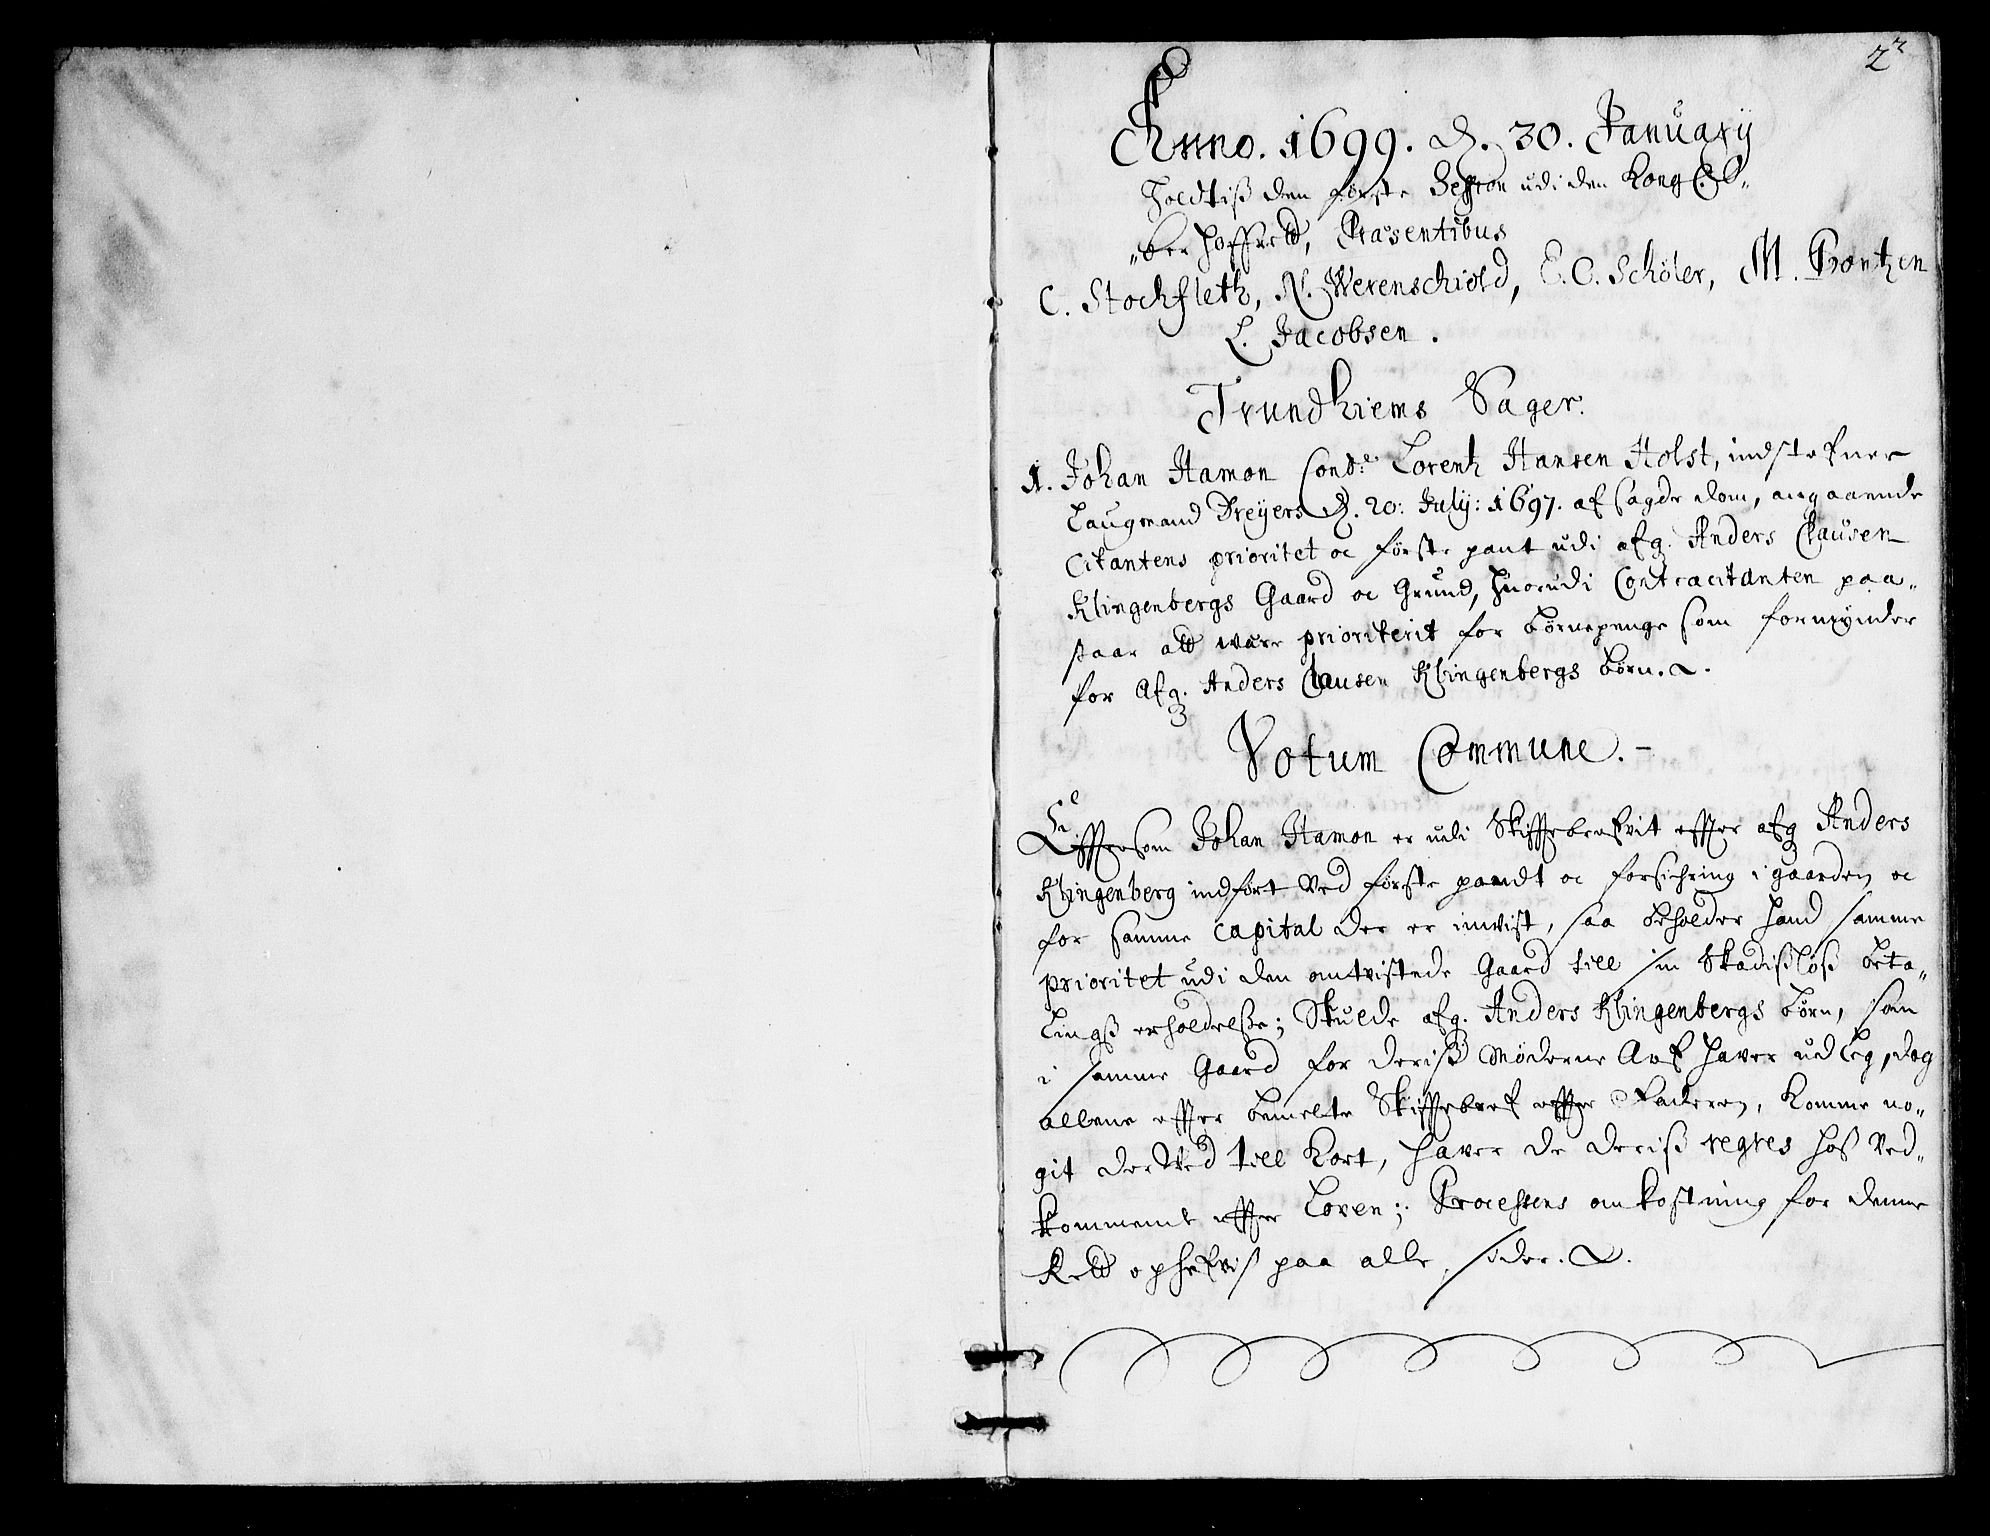 2
Anno. 1699. d. 30. January
Holdtis den første Session udi den Kongel: O„
„ber Hoffrett, Præsentibus
C. Stockfleth, N. Werenschiold, E. C. Schöler, M. Rontzen
L. Jacobsen.
Trundhiems Sager.
1. Johan Hamon Contr Lorentz Hansen Holst, indstefner
Laugmand Dreyers d. 20: July: 1697. afsagde dom, angaaende
Citantens prioritet oc første pant udi afg. Anders Clausen
Klingenbergs Gaard oc Grund, huorudi Contracitanten paa„
staar att være prioriterit for børnepenge som formynder
for Afg. Anders Clausen Klingenbergs børn.
Votum Commune.
Efftersom Johan Hamon er udi Skifftebrefvit effter afg Anders
Klingenberg indført ved første pandt oc forsichring i gaarden oc
for samme Capital der er invist, saa beholder hand samme
prioritet udi den omtvistede Gaard till sin Skadisløß beta„
lingß erholdelse; Skulde afg. Anders Klingenbergs børn, som
i samme Gaard for deriß Møderne Arf haver udleg, dog
allene effter bemelte Skifftebref effter Faderen, komme no„
git derved till kort, haver de deriß regres hoß ved„
kommende effter Loven; Processens omkostning for denne
Rett ophefvis paa alle sider.